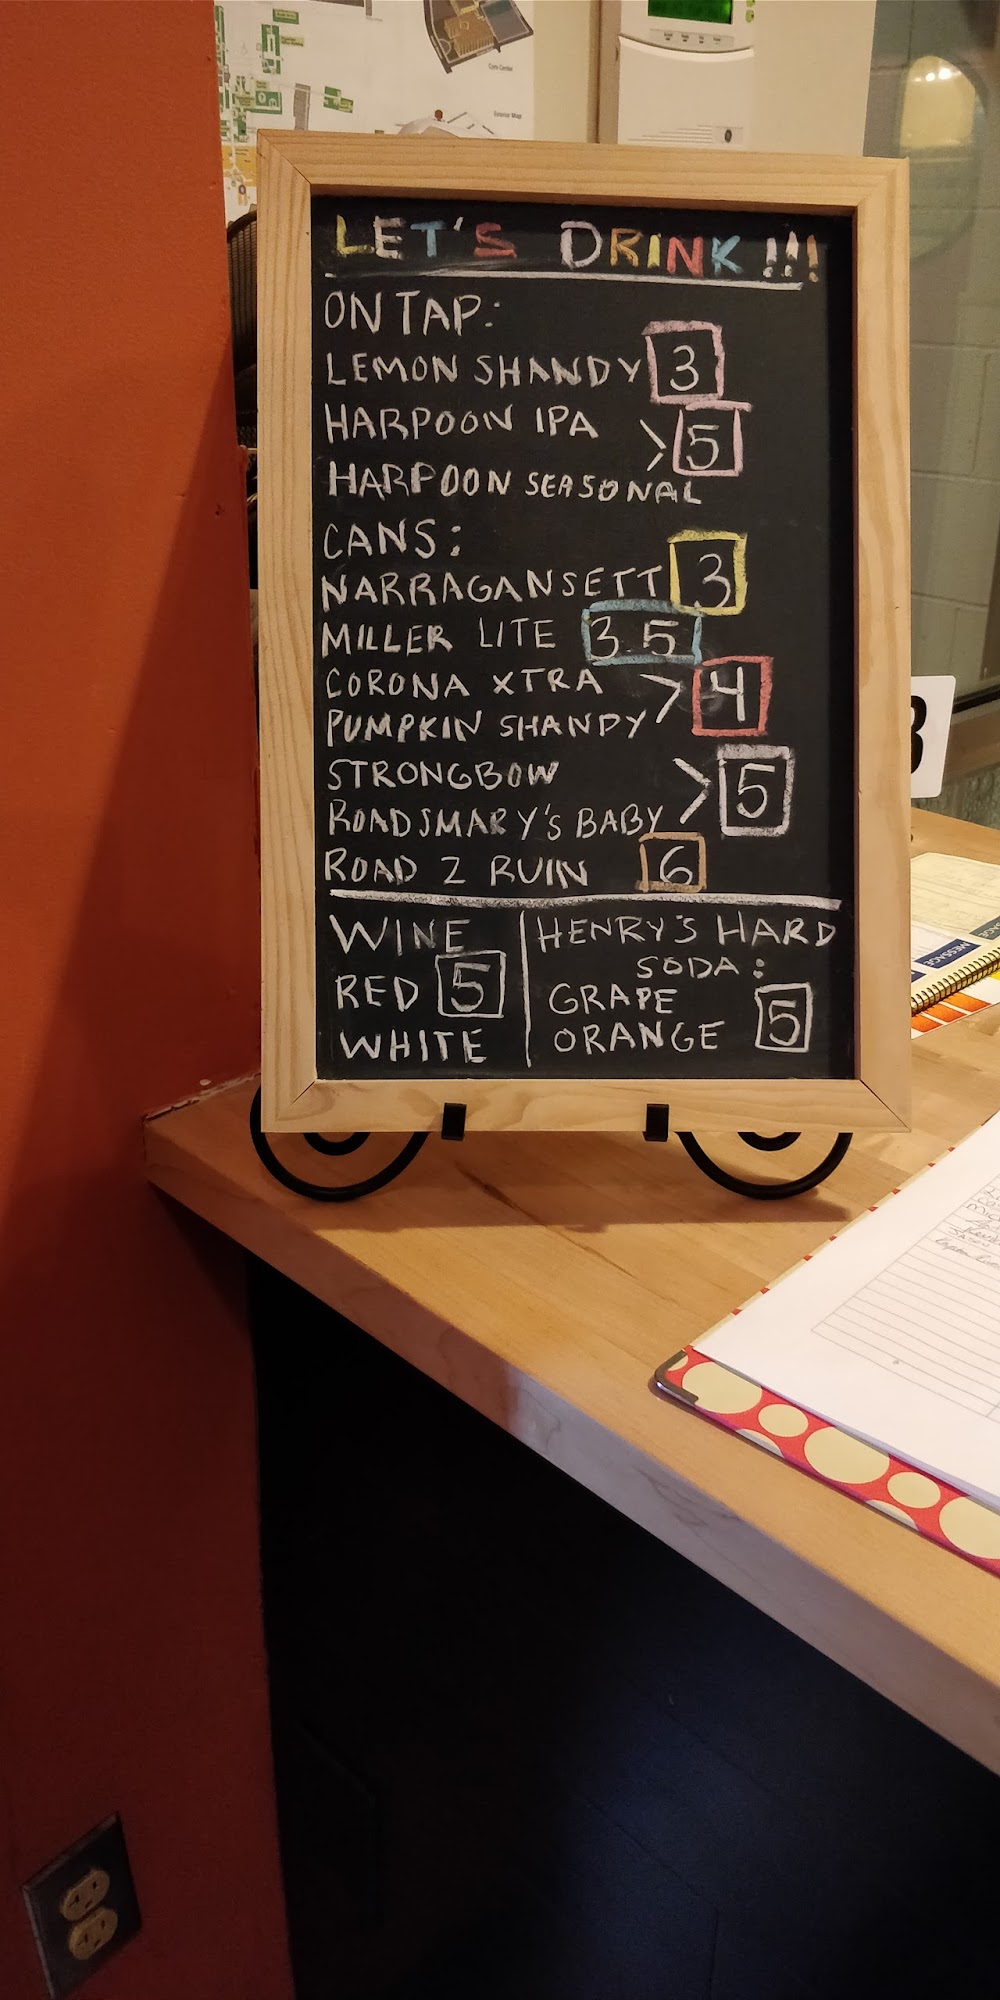 Gym Center
Exterior Map
LET'S DRINK!!!
ON TAP:
LEMON SHANDY 3
HARPOON IPA
> 5
HARPOON SEASONAL
CANS:
NARRAGANSETT 3
MILLER LITE 3.5
CORONA XTRA
> 4
PUMPKIN SHANDY
STRONGBOW
> 5
ROADSMARY'S BABY
ROAD 2 RUIN 6
WINE
RED 5
WHITE
HENRY'S HARD
SODA:
GRAPE
ORANGE 5
MESSAGE